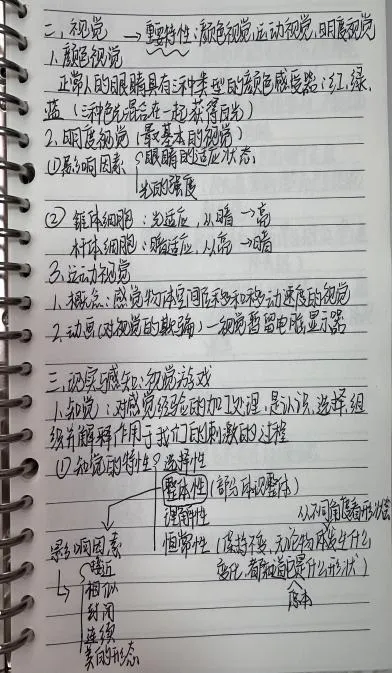 二、视觉 → 重要特性:颜色视觉,运动视觉,明度视觉
1.颜色视觉
正常人的眼睛具有三种类型的颜色感受器:红,绿,
蓝(三种色光混合在一起获得白光)
2.明度视觉(最基本的视觉)
①影响因素 眼睛的适应状态
光的强度
② 锥体细胞:光适应,从暗→亮
杆体细胞:暗适应,从亮→暗
3.运动视觉
1.概念:感觉物体空间位移和移动速度的视觉
2.动画(对视觉的欺骗)—视觉暂留电脑显示器
三.现实与感知:视觉游戏
1.知觉:对感觉经验的加工处理,是认识,选择,组
织并解释作用于我们的刺激的过程
①知觉的特性 选择性
整体性(部分体现整体)
理解性 从不同角度看形状
恒常性(保持不变,无论物体发生什么
变化,都知道它是什么形状)
原本
影响因素
接近
相似
封闭
连续
美的形态